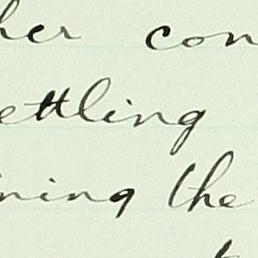 her con
ettling
ining the